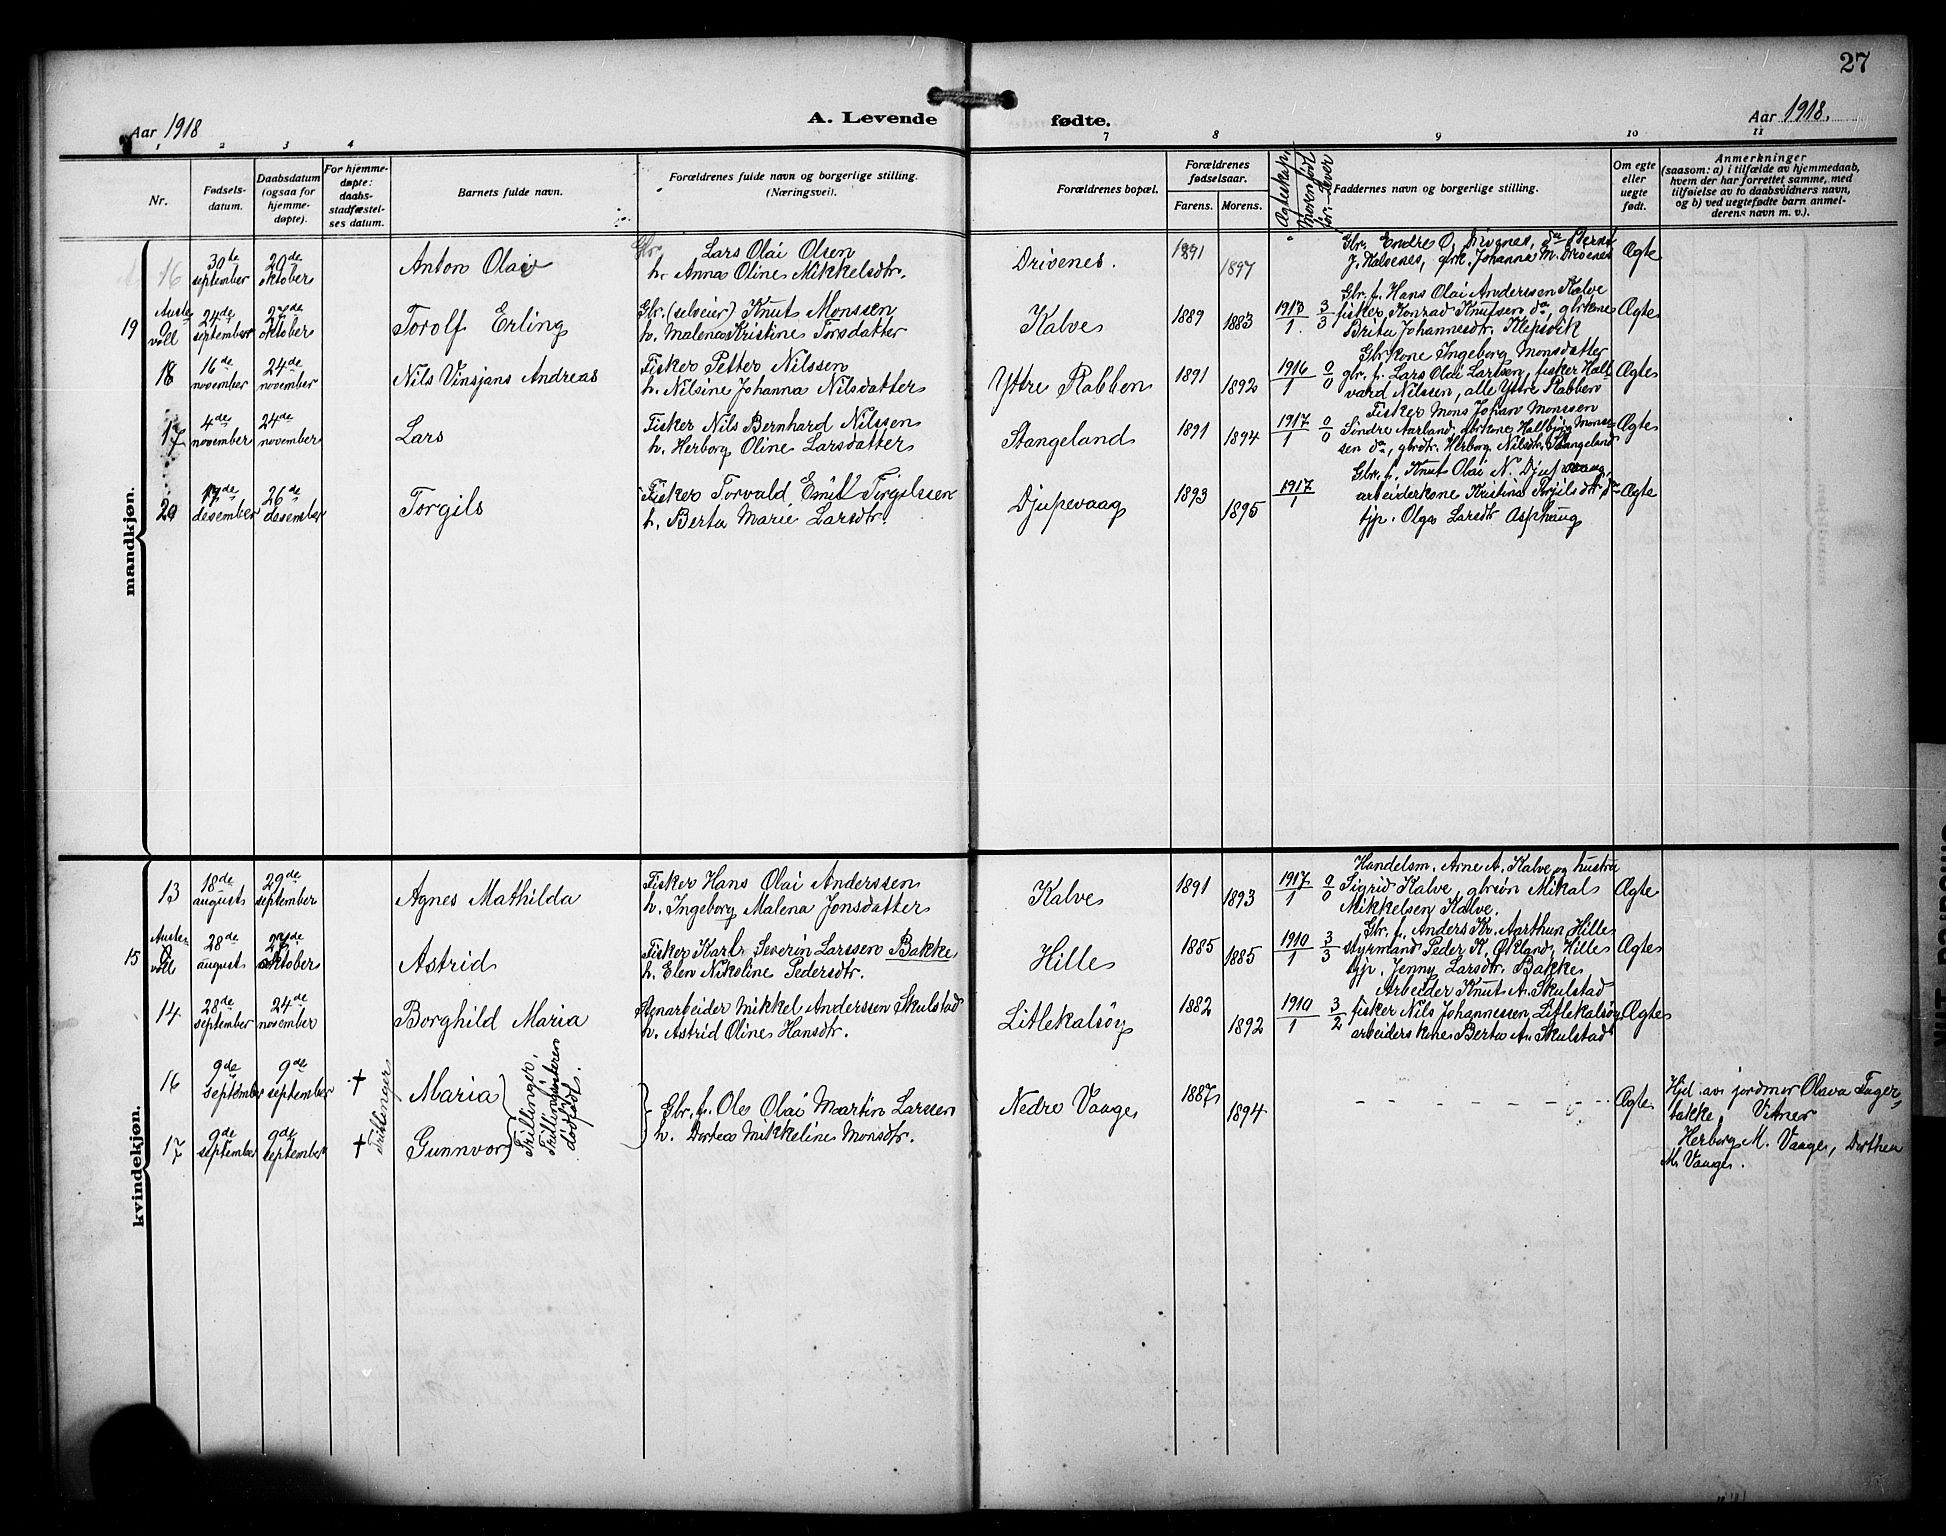 27
Aar 1918
A. Levende fødte.
Aar 1918.
1 2 3 4 7 8 9 10 11
Nr.
Fødsels-
datum.
Daabsdatum
(ogsaa for
hjemme-
døpte).
For hjemme-
døpte:
daabs-
stadfæstel-
ses datum.
Barnets fulde navn.
Forældrenes fulde navn og borgerlige stilling.
(Næringsvei).
Forældrenes bopæl.
Forældrenes
fødselsaar.
Farens. Morens.
Faddernes navn og borgerlige stilling.
Om egte
eller
uegte
født.
Anmerkninger
(saasom: a) i tilfælde av hjemmedaab,
hvem der har forrettet samme, med
tilføielse av to daabsvidners navn,
og b) ved uegtefødte barn anmel-
derens navn m. v.).
mandkjøn.
16
30te september
20de oktober
Anton Olai
Gbr. Lars Olai Olsen
h. Anna Oline Mikkelsdtr.
Drivenes.
1891
1897
Gbr. Endre O. Drivenes, da
J. Kalvenes, grk. Johanna M. Drivenes
Ægte
19
Auste-
voll
24de september
27de oktober
Torolf Erling
Gbr. (selveier) Knut Monssen
h. Malena Kristine Torsdatter
Kalve
1889
1883
1913/1 3/3
Gbr. f. Hans Olai Anderssen Kalve
fisker Konrad Knutsen da, gbrkone
Brita Johannesdtr. Klepsvik
Ægte
18
16de november
24de november
Nils Vinsjans Andreas
Fisker Petter Nilssen
h. Nilsine Johanna Nilsdatter
Yttre Rabben
1891
1892
1916/1 0/0
Gbrkone Ingeborg Monsdatter
gbr. f. Lars Olai Larsen, fisker Hall-
vard Nilssen, alle Yttre Rabben
Ægte
17
4de november
24de november
Lars
Fisker Nils Bernhard Nilssen
h. Herborg Oline Larsdatter
Stangeland
1891
1894
1917/1 0/0
Fisker Mons Johan Monssen
Sindre Aarland, gbrkone Hallbjørg Mons-
sen da, gbrdtr. Herborg Nilsdtr. Stangeland
Ægte
20
17de desember
26de desember
Torgils
Fisker Torvald Emil Torgilssen
h. Berta Marie Larsdtr.
Djupevaag
1893
1895
1917/1
Gbr. f. Knut Olai N. Djupevaag,
arbeiderkone Kristina Torgilsdtr da
tjp. Olga Larsdtr Asphaug
Ægte
kvindekjøn.
13
18de august
29de september
Agnes Mathilda
Fisker Hans Olai Anderssen
h. Ingeborg Malena Jonsdatter
Kalve
1891
1893
1917/1 0/0
Handelsm. Arne A. Kalve og hustru
Sigrid Kalve, gbrsøn Mikal
Mikkelsen Kalve.
Ægte
15
Auste-
voll
28de august
27de oktober
Astrid
Fisker Karl Severin Larssen Bakke
h. Elen Nikoline Pedersdtr.
Hille
1885
1885
1910/1 3/3
Gbr. f. Anders Kr. Aarthun Hille
styrmand Peder K. Økland, Hille
tjp. Jenny Larsdtr. Bakke
Ægte
14
28de september
24de november
Borghild Maria
Stenarbeider Mikkel Anderssen Skulstad
h. Astrid Oline Hansdtr.
Litlekalsøy
1882
1892
1910/1 3/2
Arbeider Knut A. Skulstad
fisker Nils Johannessen Litlekalsøy
arbeiders kone Berta A. Skulstad
Ægte
16
9de september
9de september
†
Maria
17
9de september
9de september
†
Gunnvor
Trillinger
Trillinger,
Trillingsøsteren
dødfødt.
Gbr. f. Ole Olai Martin Larssen
h. Dortea Mikkeline Monsdtr.
Nedre Vaage
1887
1894
- - - - - - -
Ægte
Hjd. av jordmor Olava Fager-
bakke, Vitner
Herborg M. Vaage, Dorthea
M. Vaage.